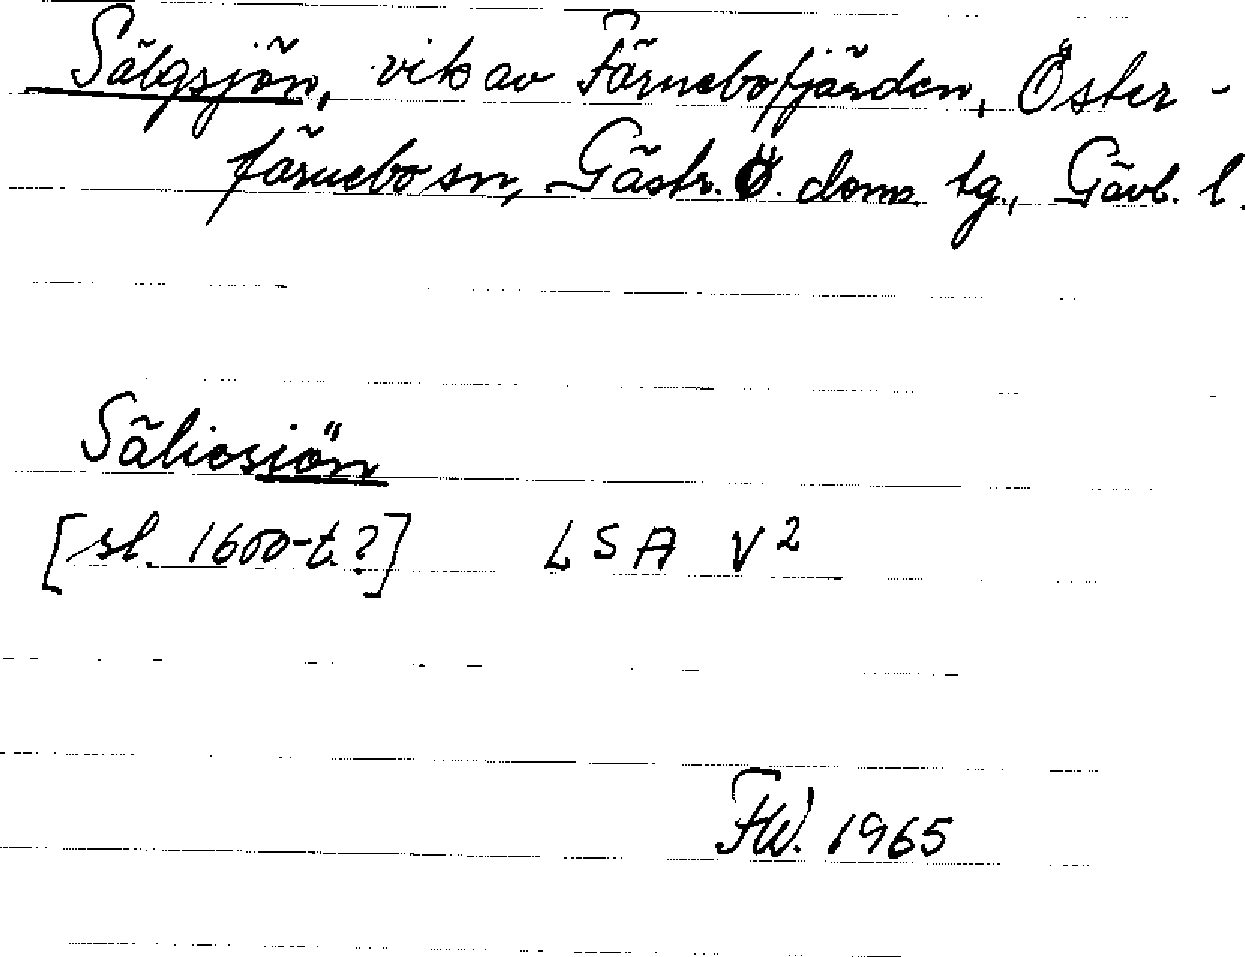 Sälgsjön, vik av Färnebofjärden, Öster-
färnebo sn, Gästr. Ö. doms tg., Gävl. l.
Säliesiön
[sl. 1600-t.?] LSA V2
FW. 1965